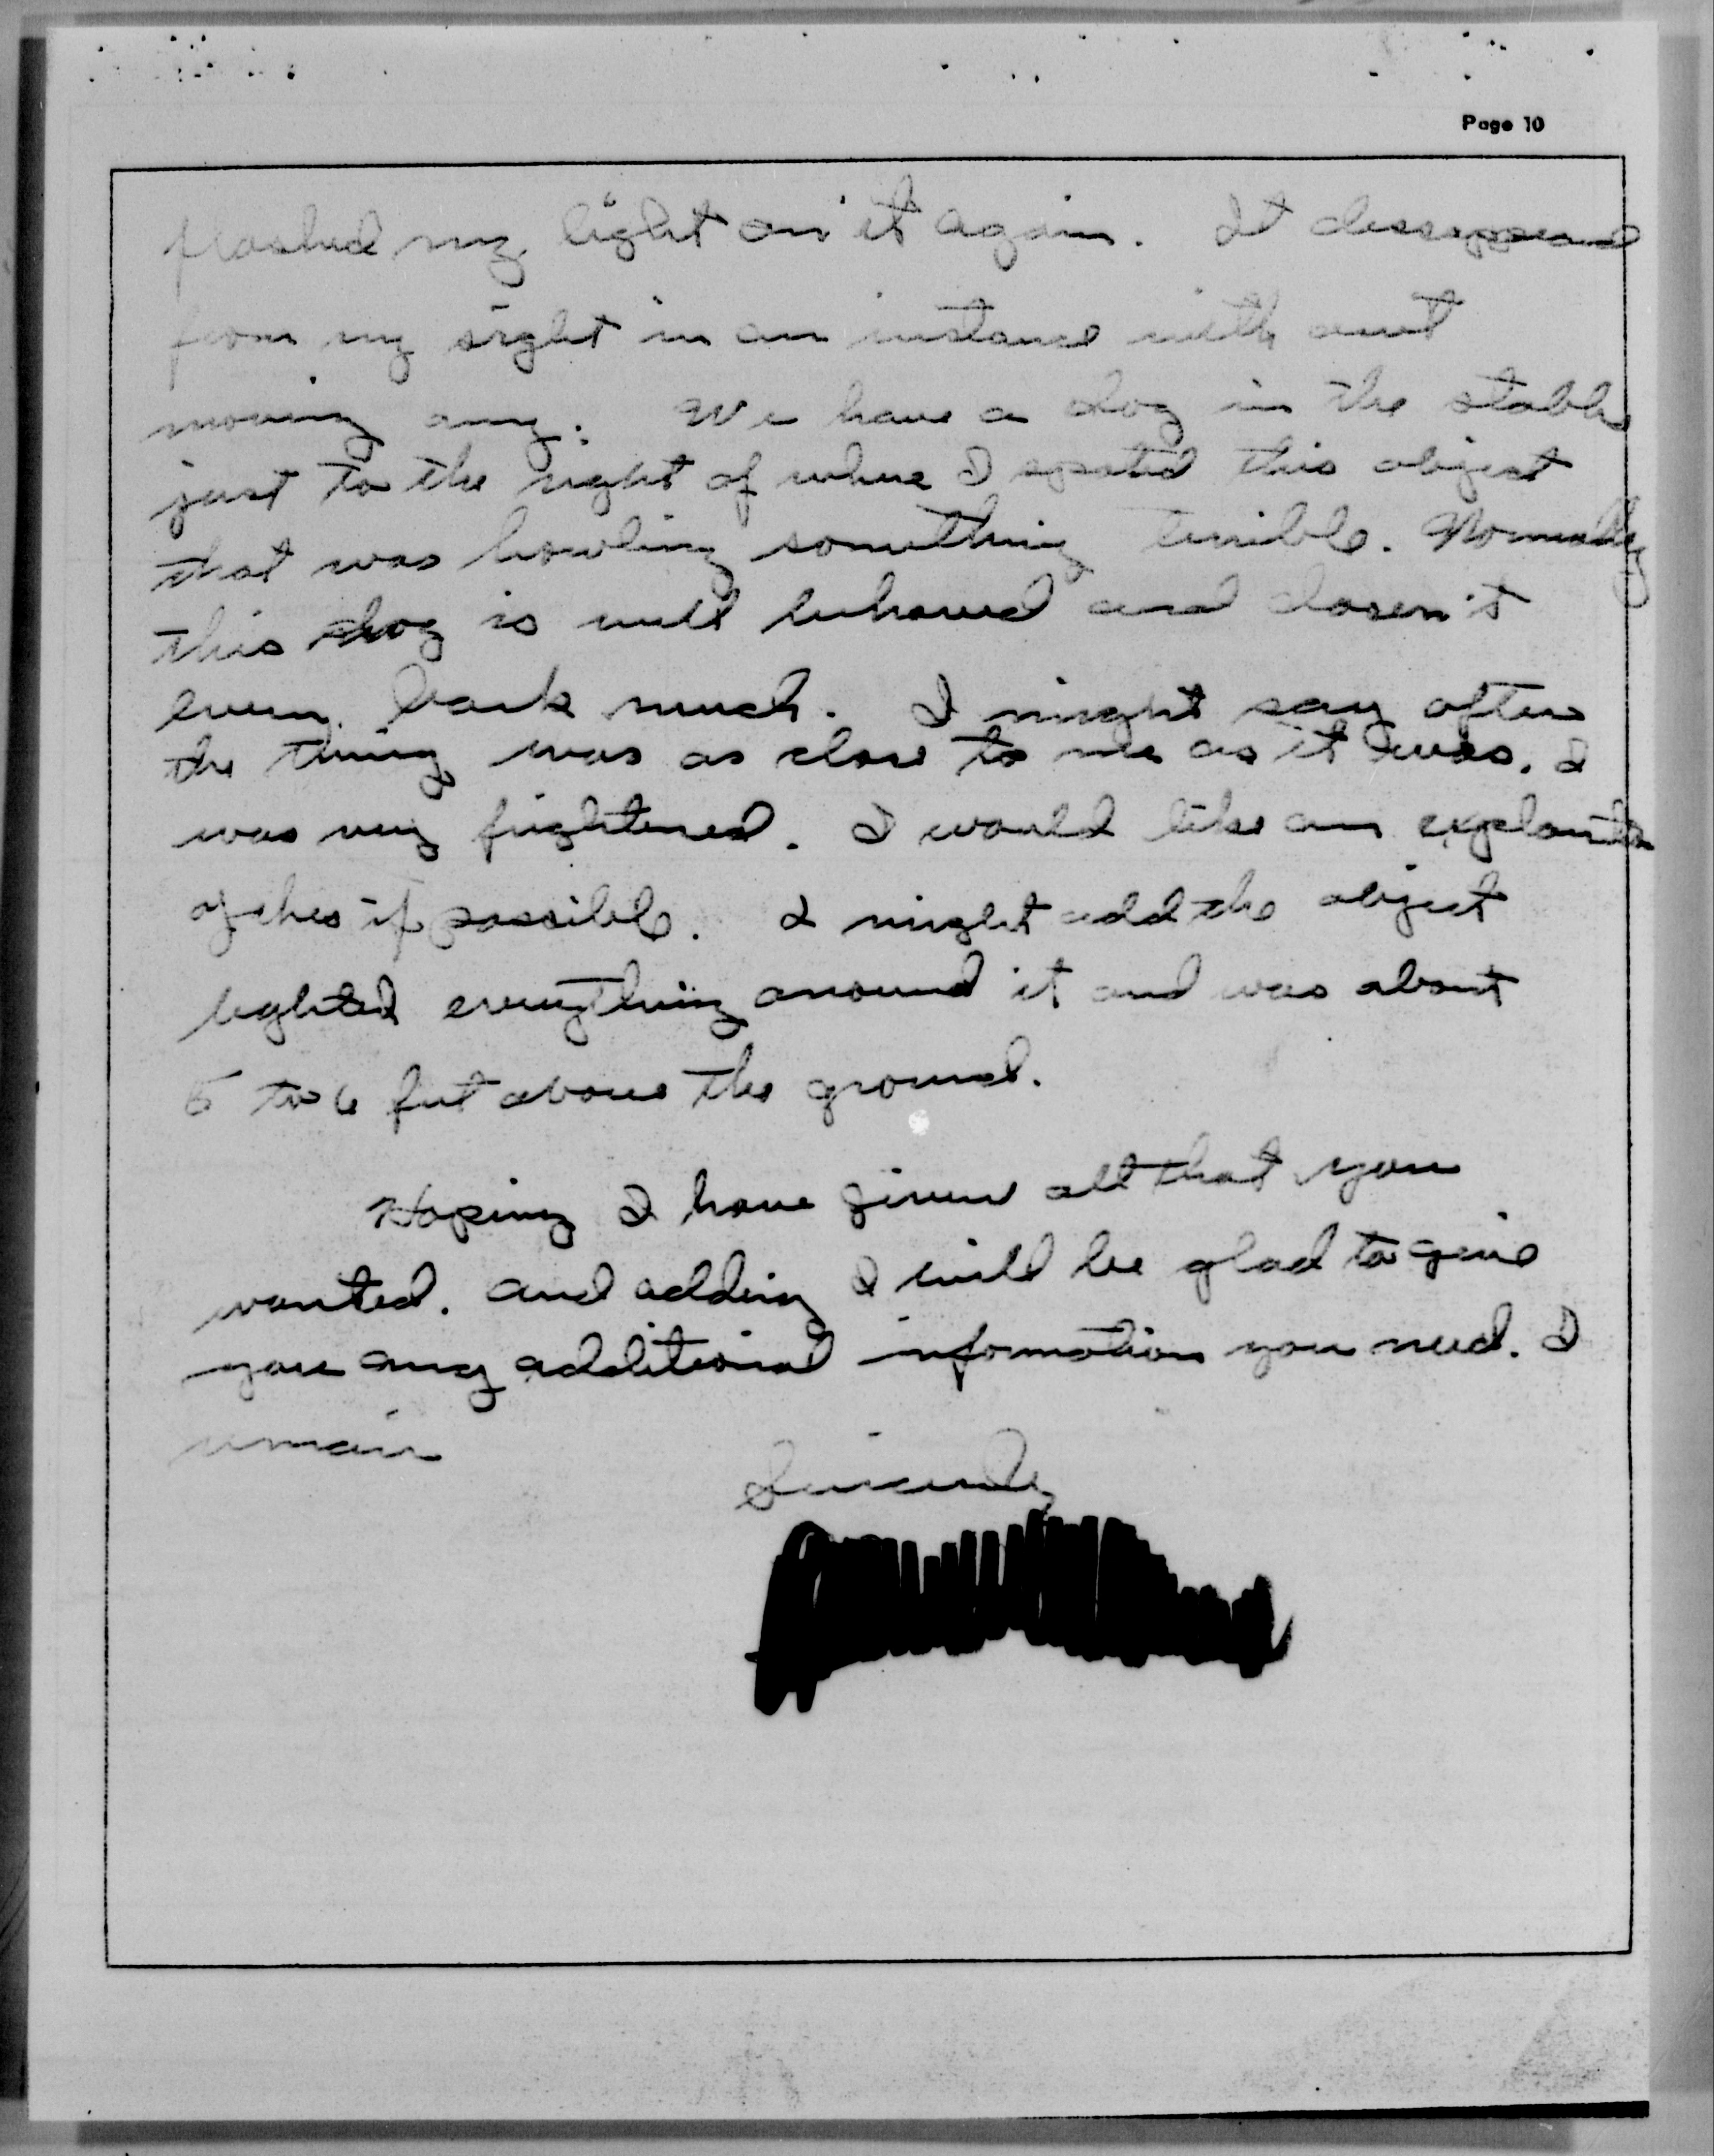 Page 10
flashed my light on it again. It dissappeared
from my sight in an instance with out
moving any. We have a dog in the stable
just to the right of where I spotted this object
that was howling something terrible. Normally
this dog is well behaved and dosen't
even bark much. I might say after
the thing was as close to me as it was. I
was very frightened. I would like an
of this if possible. I might add the object
lighted everything around it and was about
5 to 6 feet above the ground.
Hoping I have given all that you
wanted. and adding I will be glad to give
you any additional information you need. I
remain
Sincerely